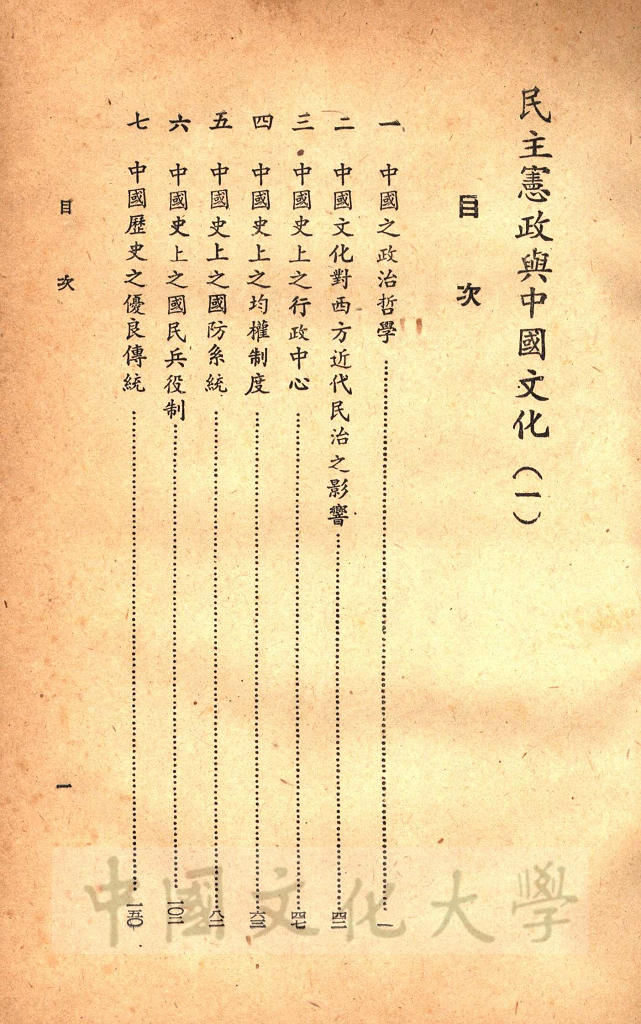 民主憲政與中國文化（一）
目次
一 中國之政治哲學………一
二 中國文化對西方近代民治之影響………四二
三 中國史上之行政中心………四七
四 中國史上之均權制度………六三
五 中國史上之國防系統………八二
六 中國史上之國民兵役制………一〇二
七 中國歷史之優良傳統………一五〇
目次 一
中國文化大學